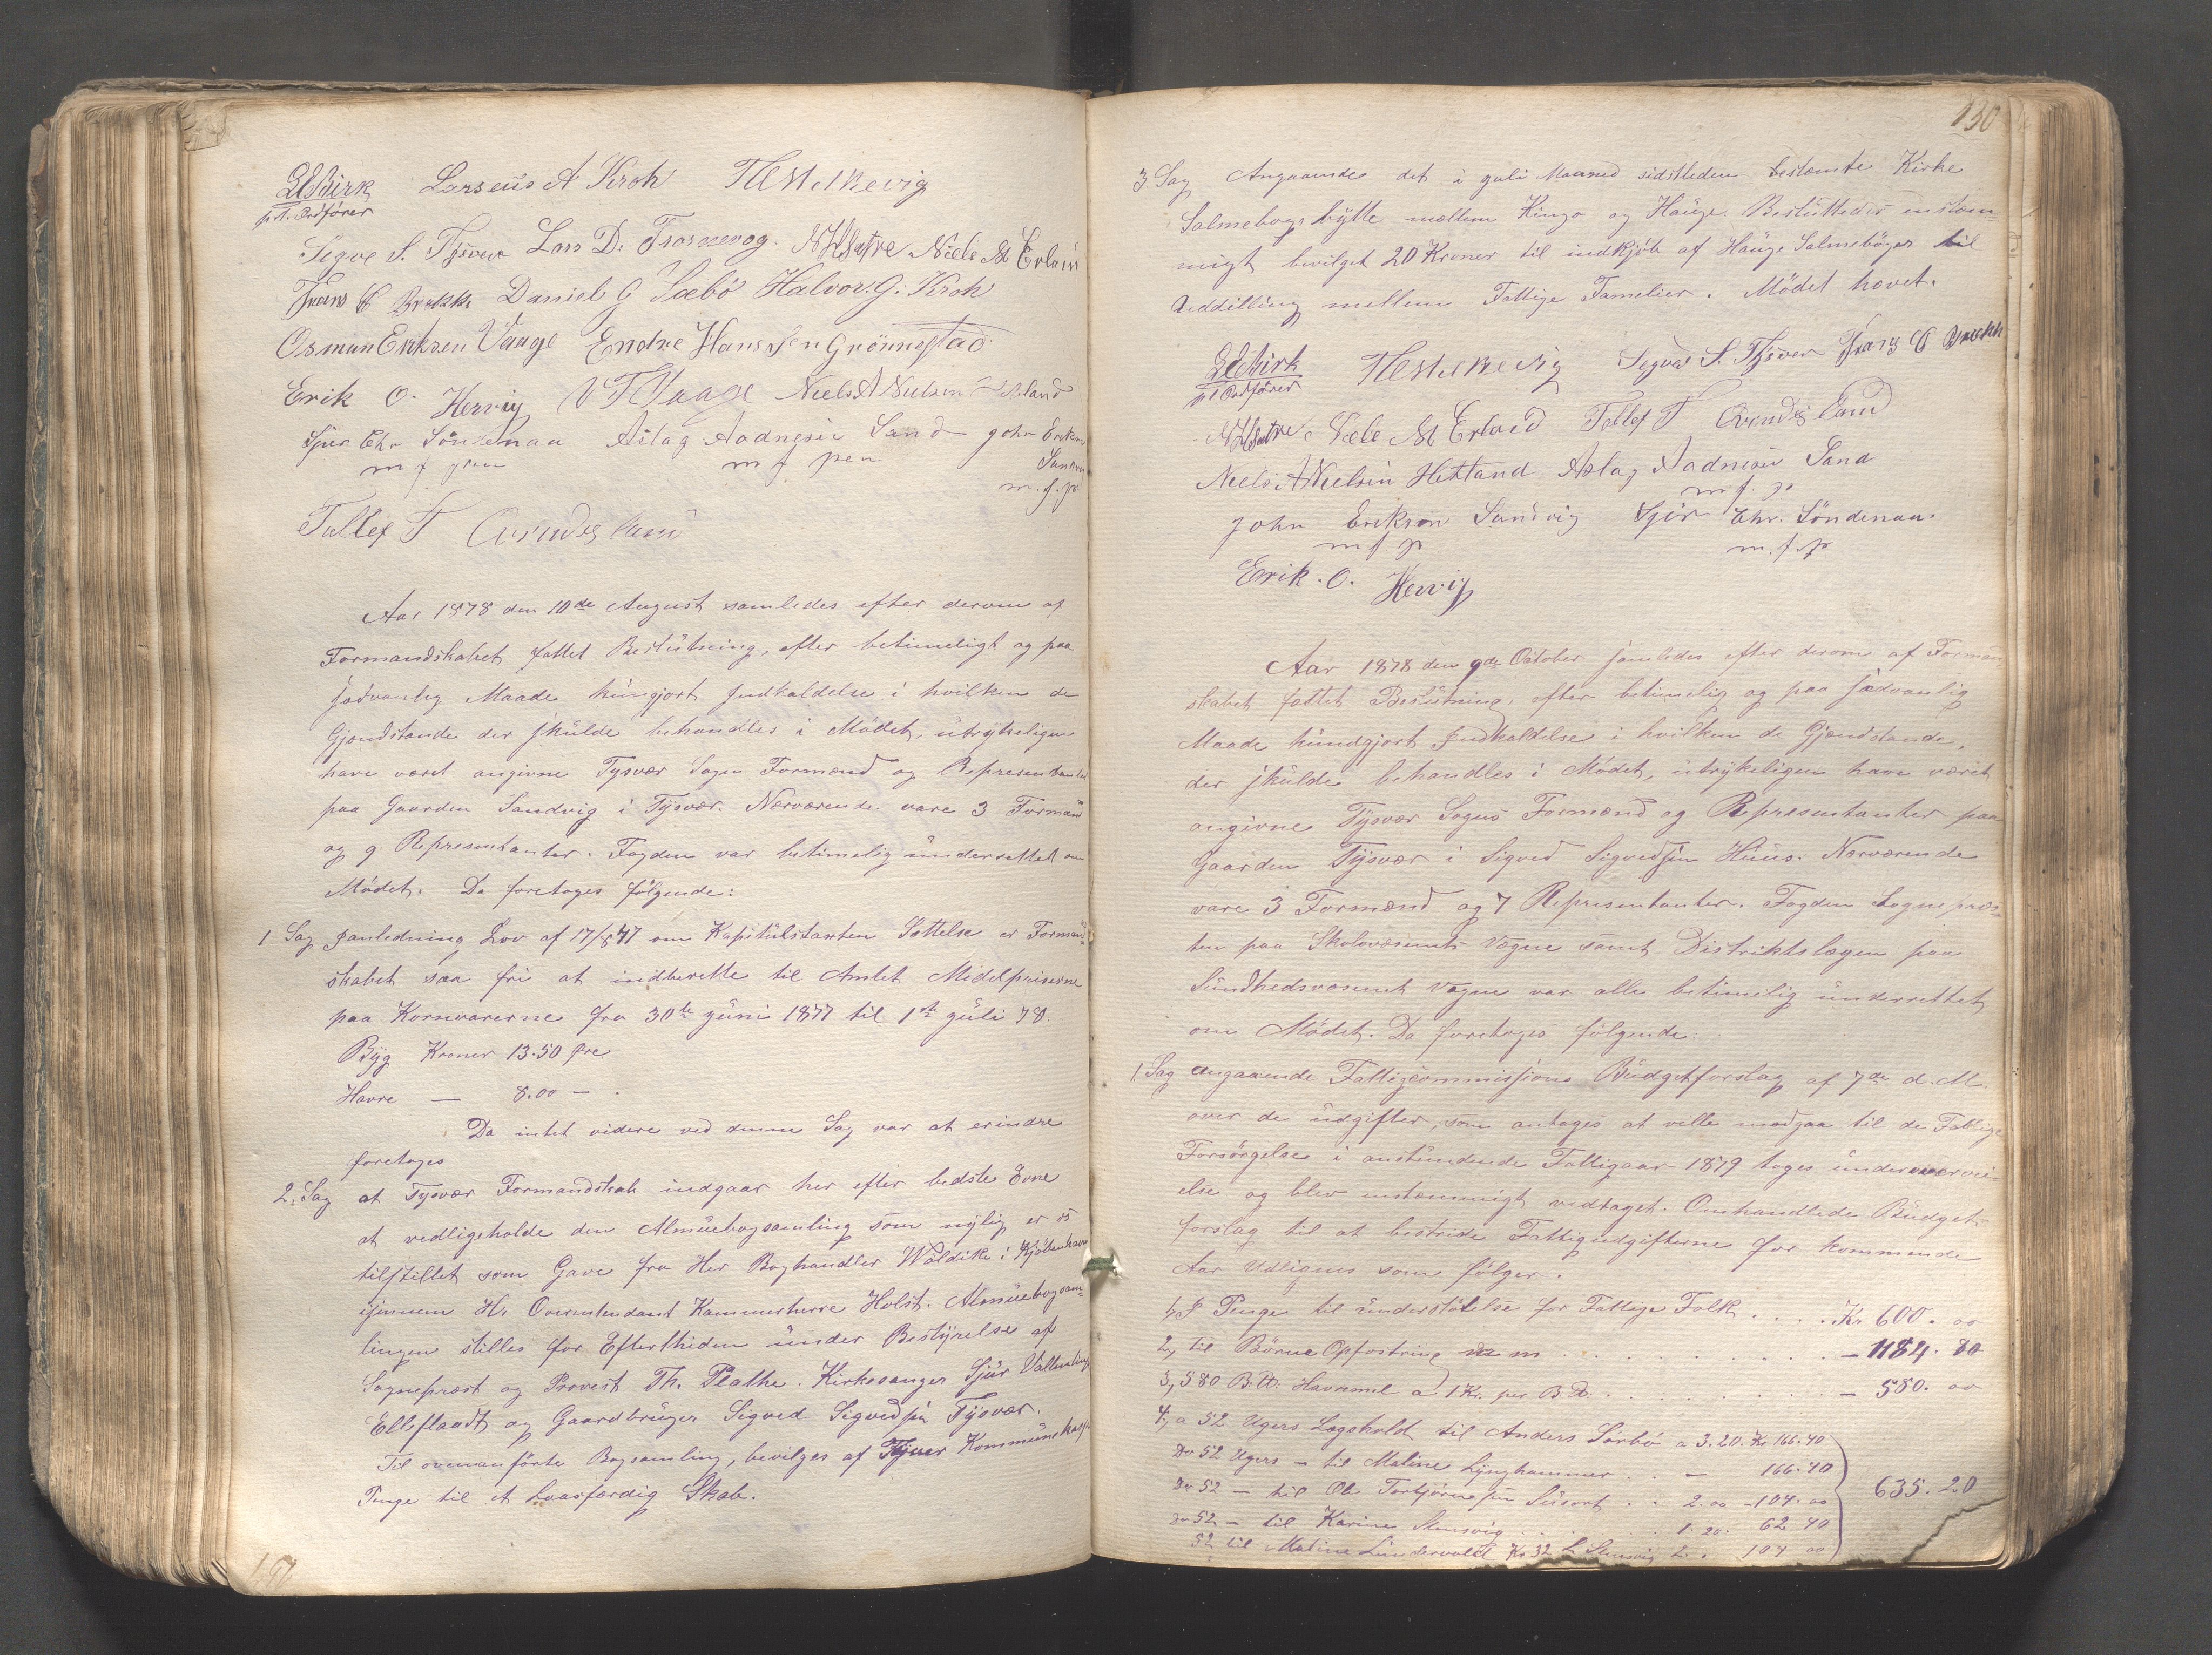 Larseus A Kroh
pt. Ordförer
Segve S. Tysver Lars D. Niels M Erland
Frans C Brekke Daniel G Sæbö Halvor. G. Kroh
Osmun Eriksen Vaage Endre Hanssen Grönnestad
Erik O. Hervig V T Vaage Niels A Nielsen Hetland
Sjur Chr Söndenaa Aslag Aadnesen Sand John Eriksen
m f pen m f pen
m. f. p
Tallef T
Aar 1878 den 10de August samledes efter derom af
Formandskabet fattet Beslutning, efter betimeligt og paa
sædvanlig Maade küngjort Jndkaldelse i hvilken de
Gjendstande der skülde behandles i Mödet, ütrykeligen
have været angivne Tysvær Sogns Formænd og Representanter
paa Gaarden Sandvig i Tysvær. Nærværende vare 3 Formænd
og 9 Representanter. Fogden var betimelig ünderrettet om
Mödet. Da foretoges fölgende:
1 Sag Janledning Lov af 17/8 47 om Kapitülstaxten Sættelse er Forman-
skabet saa fri at indberette til Amtet Midelpriserne
paa Kornvarerne fra 30te Jüni 1877 til 1ste Jüli 78.
Byg Kroner 13.50 Öre
Havre — 8.00 — .
Da intet videre ved denne Sag var at erindre
foretoges
2. Sag at Tysvær Formandskab indgaar her efter bedste Evne
at vedligeholde den Almüebogsamling som nylig er os
tilstillet som Gave fra Her Boghandler Wöldike i Kjöbenhavn
igjennem Hr Overintendant Kammerherre Holst. Almüebogsam-
lingen stilles for Eftertiden ünder Bestyrelse af
Sognepræst og Provest Th. Plathe. Kirkesanger Sjür
og Gaardbrüger Sigved Sigvedsen Tysvær.
Til ovenanförte Bogsamling, bevilges af Tysvær Kommünekasse
Penge til et Laasfærdig Skab.
130
3 Sag Angaaende det i Juli Maaned sidstleden bestemte Kirke
Salmebogs bytte mellem Kingo og Hauge. Beslüttedes enstem-
migt bevilget 20 Kroner til indkjöb af Hauge Salmeböger til
Uddelling mellem Fattige Familier. Mödet hævet.
Segve S. Tysver Frans C Brekke
pt Ordförer
Niels M Erland Tallef T
Niels A Nielsen Hetland Aslag Aadnesen Sand
m f. p
John Erikson Sandvig Sjür Chr. Söndenaa
m f p m. f. p
Erik. O. Hervig
Aar 1878 den 9de October samledes efter derom af Forman-
skabet fattet Beslütning, efter betimelig og paa sædvanlig
Maade kündgjort Jndkaldelse i hvilken de Gjendstande,
der skülde behandles i Mödet, ütrykeligen have været
angivne Tysvær Sogns Formænd og Representanter paa
Gaarden Tysvær i Sigved Sigvedsen Hüüs. Nærværende
vare 3 Formænd og 7 Representanter. Fogden Sognepræs-
ten paa Skolevæsenets Vægne samt Distriktslægen paa
Sündhedsvæsenet Vægne var alle betimelig ünderrettet
om Mödet. Da foretoges fölgende:
1 Sag angaaende Fattigcommissions Büdgetforslag af 7de d. M.
over de üdgifter, som antages at ville medgaa til de Fattiges
Forsörgelse i anstündende Fattigaar 1879 toges
else og blev enstemmigt vedtaget. Omhandlede Büdget-
forslag til at bestride Fattigudgifterne for kommende
Aar Udlignes som fölger.
1, J Penge til ünderstöttelse for Fattige Folk . . . . Kr 600. 00
2, til Börne Opfostring m m . . . . . . . — 1184. 80
3, 580 B. Havremel a 1 Kr. per B . . . . . . — 580. 00
4, a 52 Ugers Lægehold til Anders Sörbö a 3.20. Kr 166.40
Do 52 Ugers — til Maline Lynghammer . . — 166.40
Do 52 — til Ole Torbjörnsen . . 2.00 — 104. 00 635.20
Do 52 — til Karine Stensvig . . . 1.20. 62 40
52 til Maline Lündervold 104 00